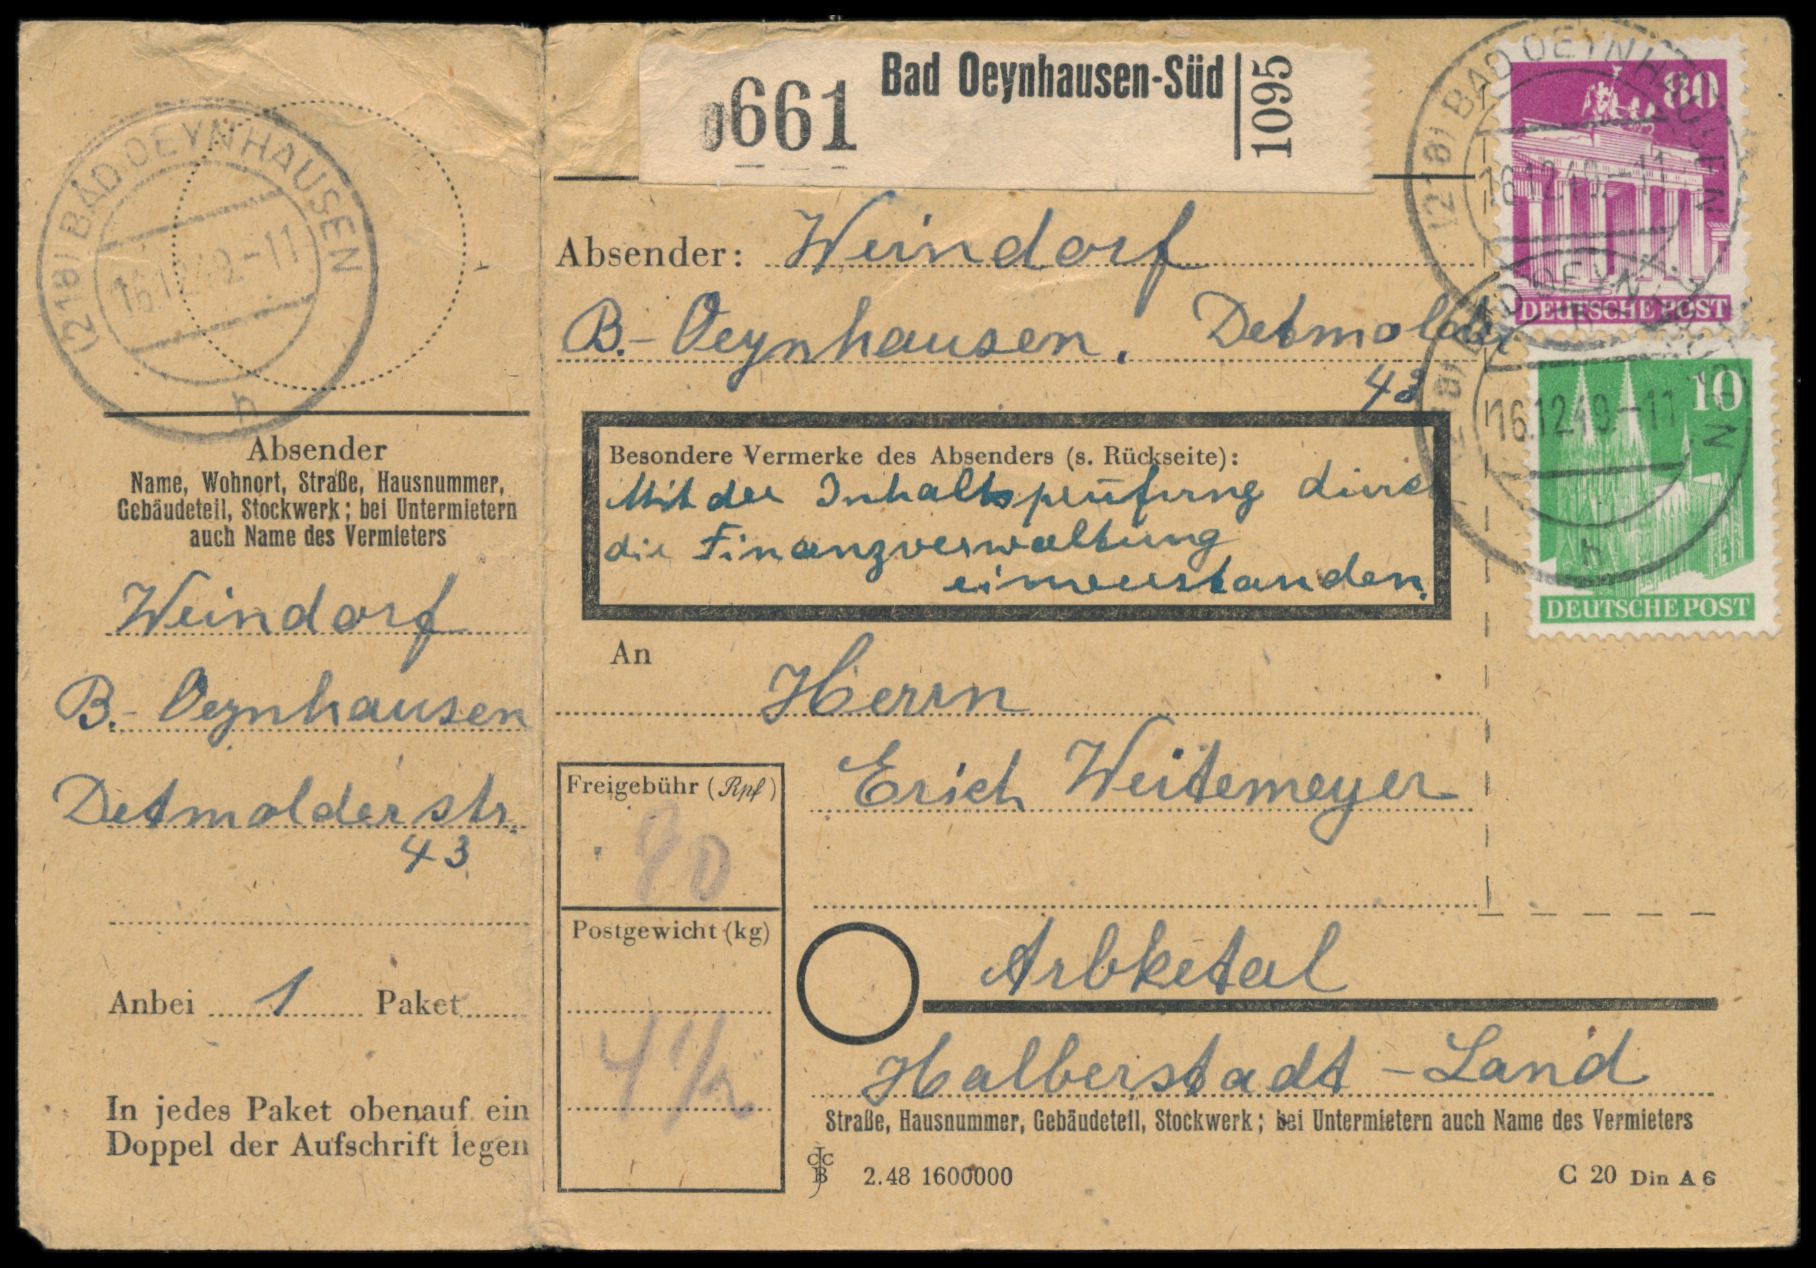 (21a) BAD OEYNHAUSEN
16.12.49.-11
h
Absender
Name, Wohnort, Straße, Hausnummer,
Gebäudeteil, Stockwerk; bei Untermietern
auch Name des Vermieters
Weindorf
B.- Oeynhausen
Detmolderstr.
43
Anbei 1 Paket
In jedes Paket obenauf ein
Doppel der Aufschrift legen
661
Bad Oeynhausen-Süd
1095
Absender: Weindorf
B.- Oeynhausen, Detmolder
43
Besondere Vermerke des Absenders (s. Rückseite):
Mit der Inhaltsprüfung durch
die Finanzverwaltung
einverstanden.
An
Herrn
Erich Weitemeyer
Freigebühr (Rpf)
90
Postgewicht (kg)
4 1/2
Halberstadt - Land
Straße, Hausnummer, Gebäudeteil, Stockwerk; bei Untermietern auch Name des Vermieters
2.48 1600000
C 20 Din A 6
80
DEUTSCHE POST
(21a) BAD OEYNHAUSEN
16.12.49.-11
10
DEUTSCHE POST
BAD OEYNHAUSEN
16.12.49.-11
h